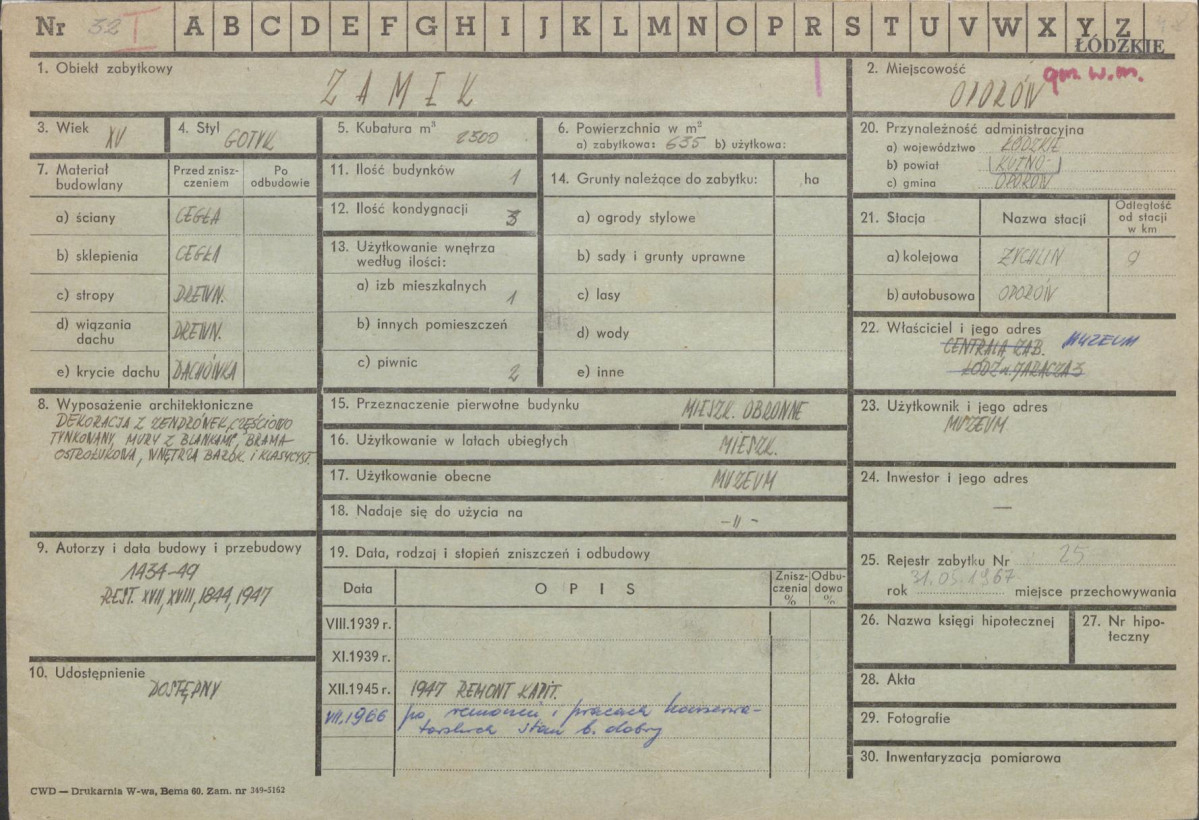 Nr 32 I A B C D E F G H I J K L M N O P R S T U V W X Y Z
ŁÓDZKIE
1. Obiekt zabytkowy
ZAMEK
2. Miejscowość gm. w.m.
OPORÓW
3. Wiek
XV
4. Styl
GOTYK
5. Kubatura m³
2500
6. Powierzchnia w m²
a) zabytkowa: 635 b) użytkowa:
7. Materiał budowlany
Przed znisz-
czeniem
Po
odbudowie
a) ściany CEGŁA
b) sklepienia CEGŁA
c) stropy DREWN.
d) wiązania
dachu DREWN.
e) krycie dachu DACHÓWKA
8. Wyposażenie architektoniczne
DEKORACJA Z ZENDRÓWEK, CZĘŚCIOWO
TYNKOWANY, MURY Z BLANKAMI, BRAMA
OSTROŁUKOWA, WNĘTRZA BAROK I KLASYCYST.
9. Autorzy i data budowy i przebudowy
1434-49
REST. XVII, XVIII, 1844, 1947
10. Udostępnienie
DOSTĘPNY
11. Ilość budynków 1
12. Ilość kondygnacji 3
13. Użytkowanie wnętrza
według ilości:
a) izb mieszkalnych 1
b) innych pomieszczeń
c) piwnic 2
14. Grunty należące do zabytku: ha
a) ogrody stylowe
b) sady i grunty uprawne
c) lasy
d) wody
e) inne
15. Przeznaczenie pierwotne budynku MIESZK. OBRONNE
16. Użytkowanie w latach ubiegłych MIESZK.
17. Użytkowanie obecne MUZEUM
18. Nadaje się do użycia na -〃-
19. Data, rodzaj i stopień zniszczeń i odbudowy
Data OPIS
Znisz-
czenia
%
Odbu-
dowa
%
VIII.1939 r.
XI.1939 r.
XII.1945 r. 1947 REMONT KAPIT.
VII.1966 po remoncie i pracach konserwa-
torskich stan b. dobry
20. Przynależność administracyjna
a) województwo ŁÓDZKIE
b) powiat KUTNO
c) gmina OPORÓW
21. Stacja
Nazwa stacji
Odległość
od stacji
w km
a) kolejowa ŻYCHLIN 9
b) autobusowa OPORÓW
22. Właściciel i jego adres
CENTRALA ZAB. MUZEUM
ŁÓDŹ ul. JARACZA 3
23. Użytkownik i jego adres
MUZEUM
24. Inwestor i jego adres
—
25. Rejestr zabytku Nr 25
rok 31.05.1967 miejsce przechowywania
26. Nazwa księgi hipotecznej
27. Nr hipo-
teczny
28. Akta
29. Fotografie
30. Inwentaryzacja pomiarowa
CWD — Drukarnia W-wa, Bema 60. Zam. nr 349-5162